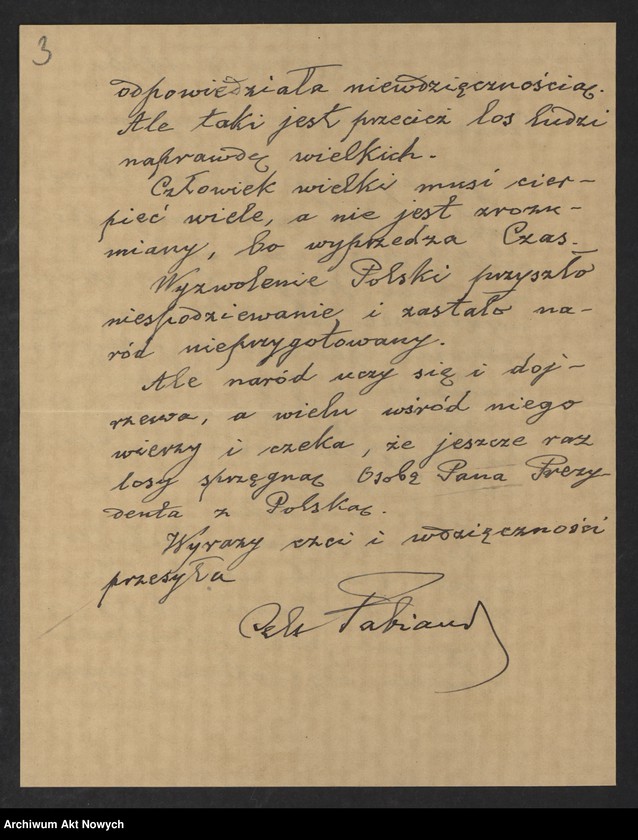 3
odpowiedziała niewdzięcznością.
Ale taki jest przecież los ludzi
naprawdę wielkich.
Człowiek wielki musi cier-
pieć wiele, a nie jest zrozu-
miany, bo wyprzedza Czas.
Wyzwolenie Polski przyszło
niespodziewanie i zastało na-
ród nieprzygotowany.
Ale naród uczy się i doj-
rzewa, a wielu wśród niego
wierzy i czeka, że jeszcze raz
losy sprzęgną Osobę Pana Prezy
denta z Polską.
Wyrazy czci i wdzięczności
przesyła
Archiwum Akt Nowych